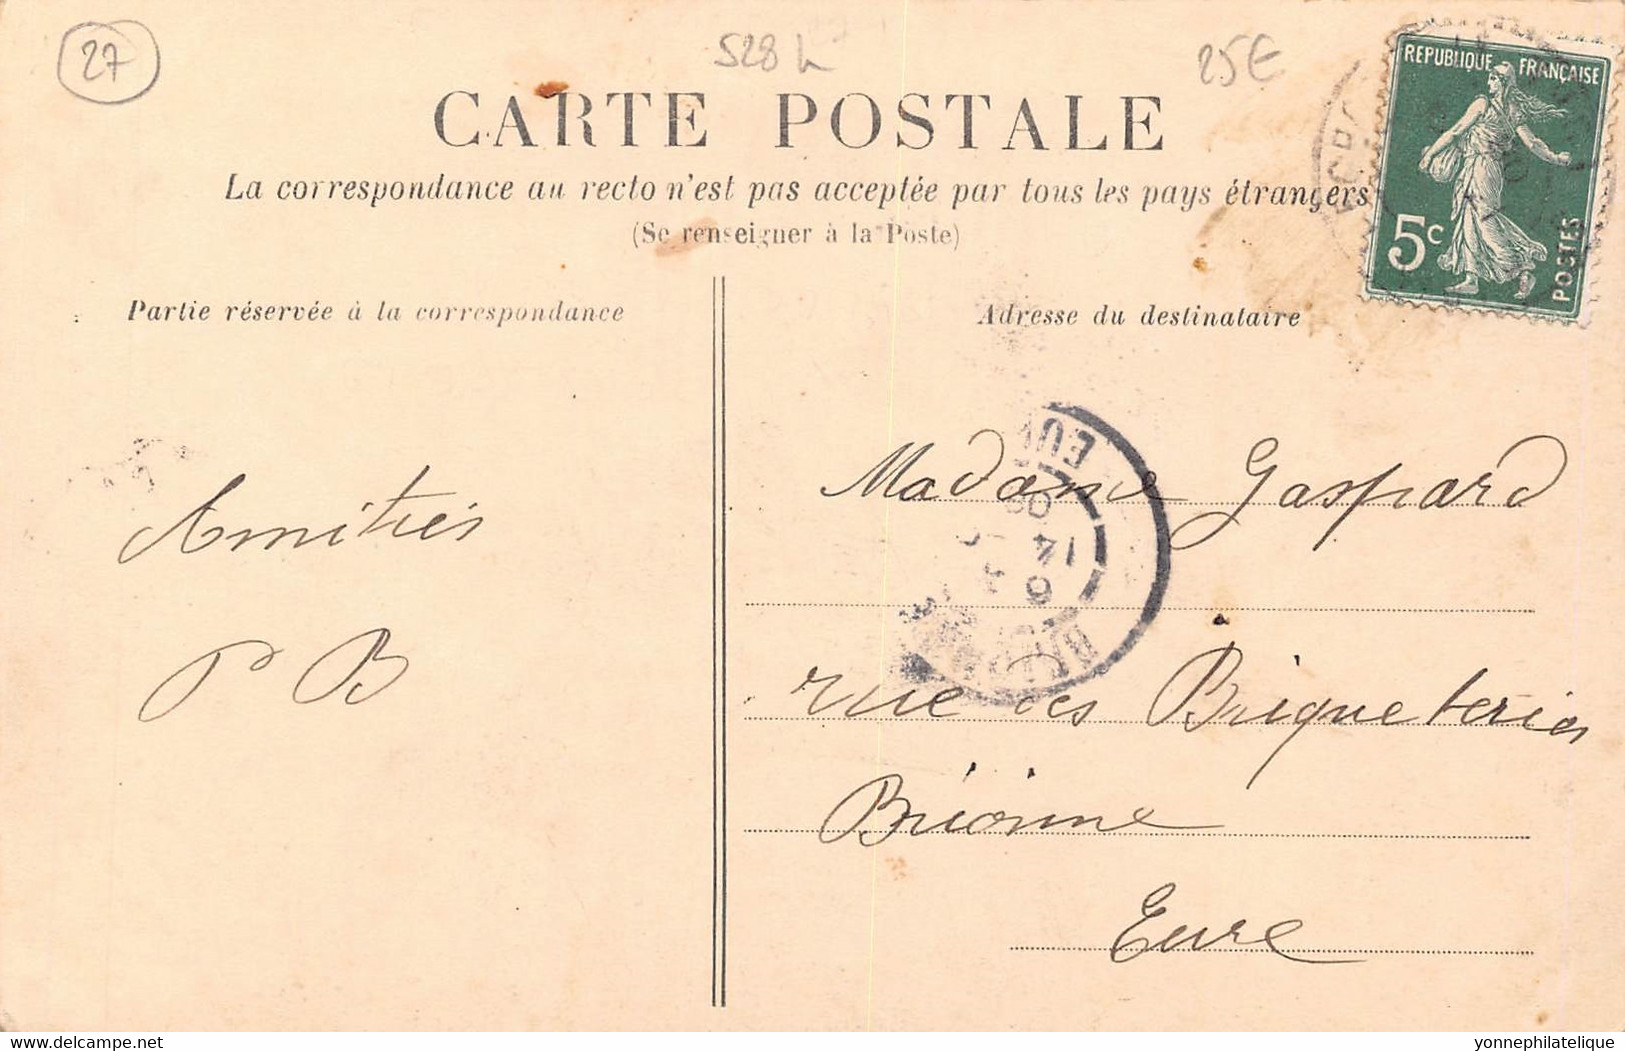 27
528 L
25€
CARTE POSTALE
La correspondance au recto n'est pas acceptée par tous les pays étrangers
(Se renseigner à la Poste)
REPUBLIQUE FRANÇAISE
5c
POSTES
Partie réservée à la correspondance
Adresse du destinataire
Amitiés
P B
Madame Gaspard
rue des Briqueteries
Brionne
Eure
14
08
delcampe.net
yonnephilatelique